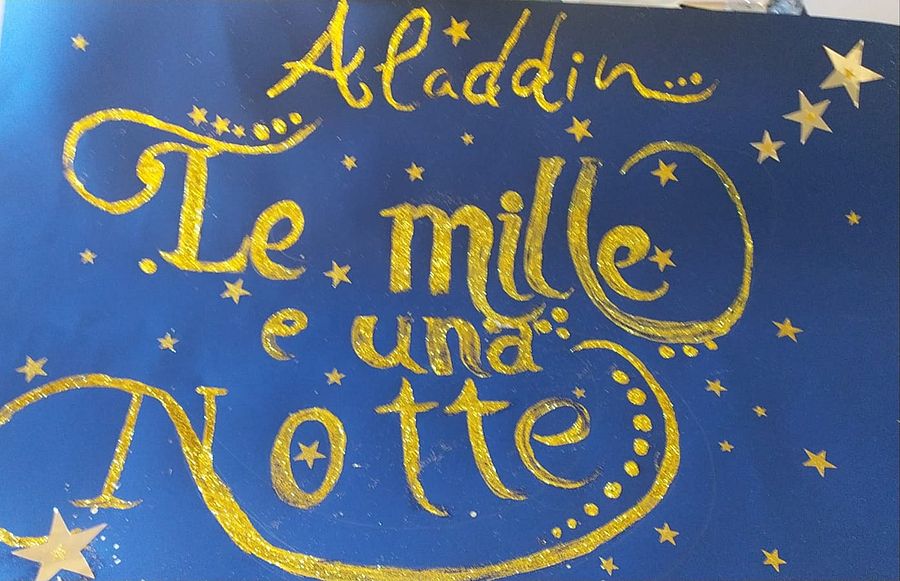 Aladdin
Le mille
e una
Notte